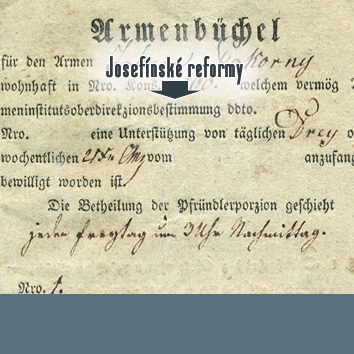 Armenbüchel
für den Armen Pokorny
Josefínské reformy
wohnhaft in Nro. Kons. welchem vermög
meninstitutsoberdirekzionsbestimmung ddto.
Nro. eine Unterstützung von täglichen Drey
wochentlichen 21 Xr vom anzufang
bewilligt worden ist.
Die Betheilung der Pfründlerporzion geschieht
jeden Freytag um 3 Uhr Nachmittag.
Nro. 1.